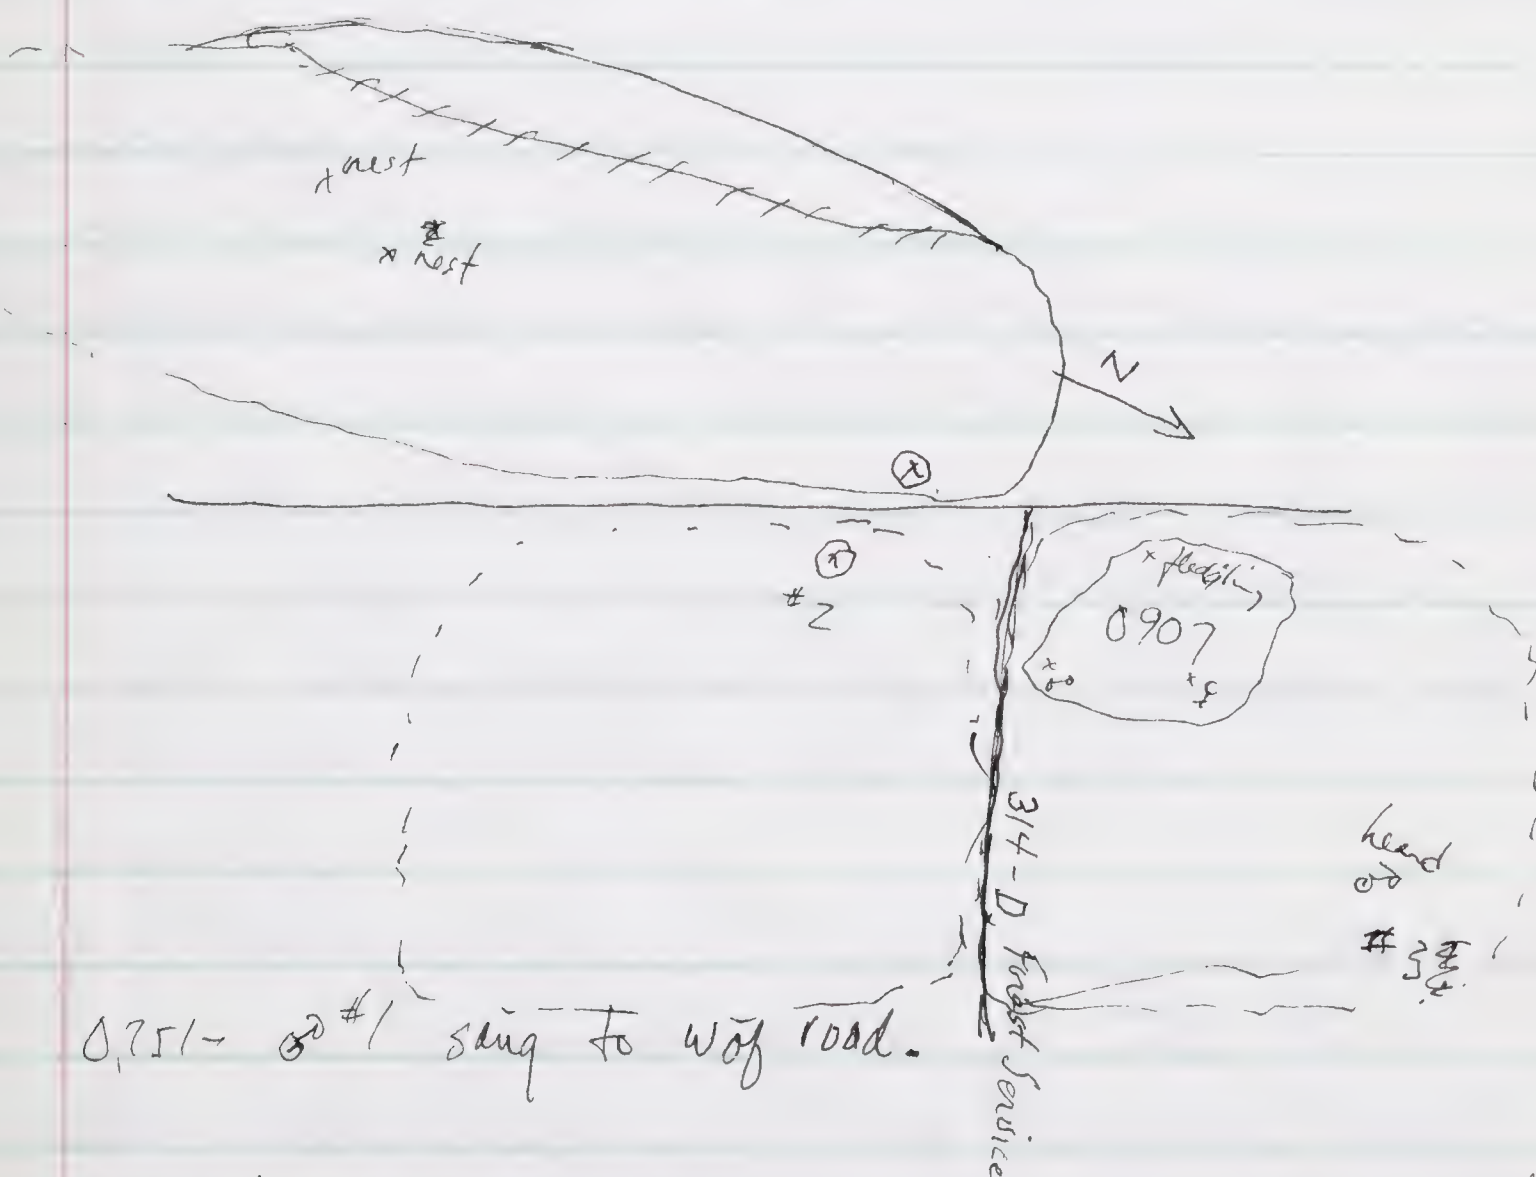 x nest
x nest
N
x
x
#2
x fledgling
0907
x ♂
x ♀
314-D, Forest Service
heard
♂
# 3
0751- ♂ #1 sang to W of road.